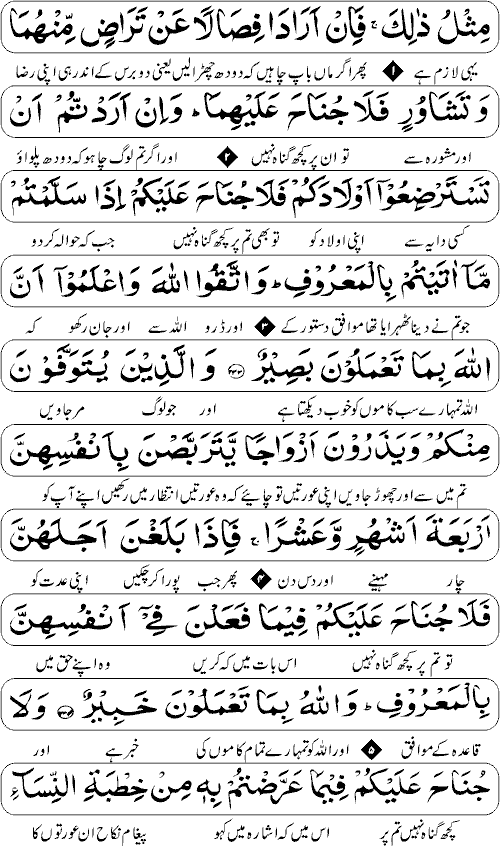 مِثْلُ ذٰلِكَ ۚ فَاِنْ اَرَادَا فِصَالًا عَنْ تَرَاضٍ مِّنْهُمَا
یہی لازم ہے ۱ پھر اگر ماں باپ چاہیں کہ دودھ چھڑا لیں یعنی دو برس کے اندر ہی اپنی رضا
وَ تَشَاوُرٍ فَلَا جُنَاحَ عَلَيْهِمَا ؕ وَ اِنْ اَرَدْتُّمْ اَنْ
اور مشورہ سے تو ان پر کچھ گناہ نہیں ۲ اور اگر تم لوگ چاہو کہ دودھ پلواؤ
تَسْتَرْضِعُوْۤا اَوْلَادَكُمْ فَلَا جُنَاحَ عَلَيْكُمْ اِذَا سَلَّمْتُمْ
کسی دایہ سے اپنی اولاد کو تو بھی تم پر کچھ گناہ نہیں جب کہ حوالہ کر دو
مَّاۤ اٰتَيْتُمْ بِالْمَعْرُوْفِ ؕ وَ اتَّقُوا اللّٰهَ وَ اعْلَمُوْۤا اَنَّ
جو تم نے دینا ٹھہرایا تھا موافق دستور کے ۳ اور ڈرو اللہ سے اور جان رکھو کہ
اللّٰهَ بِمَا تَعْمَلُوْنَ بَصِيْرٌ ۲۳۳ وَ الَّذِيْنَ يُتَوَفَّوْنَ
اللہ تمہارے سب کاموں کو خوب دیکھتا ہے اور جو لوگ مر جاویں
مِنْكُمْ وَ يَذَرُوْنَ اَزْوَاجًا يَّتَرَبَّصْنَ بِاَنْفُسِهِنَّ
تم میں سے اور چھوڑ جاویں اپنی عورتیں تو چاہیے کہ وہ عورتیں انتظار میں رکھیں اپنے آپ کو
اَرْبَعَةَ اَشْهُرٍ وَّ عَشْرًا ۚ فَاِذَا بَلَغْنَ اَجَلَهُنَّ
چار مہینے اور دس دن ۴ پھر جب پورا کر چکیں اپنی عدت کو
فَلَا جُنَاحَ عَلَيْكُمْ فِيْمَا فَعَلْنَ فِيْۤ اَنْفُسِهِنَّ
تو تم پر کچھ گناہ نہیں اس بات میں کہ کریں وہ اپنے حق میں
بِالْمَعْرُوْفِ ؕ وَ اللّٰهُ بِمَا تَعْمَلُوْنَ خَبِيْرٌ ۲۳۴ وَ لَا
قاعدہ کے موافق ۵ اور اللہ کو تمہارے تمام کاموں کی خبر ہے اور
جُنَاحَ عَلَيْكُمْ فِيْمَا عَرَّضْتُمْ بِهٖ مِنْ خِطْبَةِ النِّسَآءِ
کچھ گناہ نہیں تم پر اس میں کہ اشارہ میں کہو پیغام نکاح ان عورتوں کا